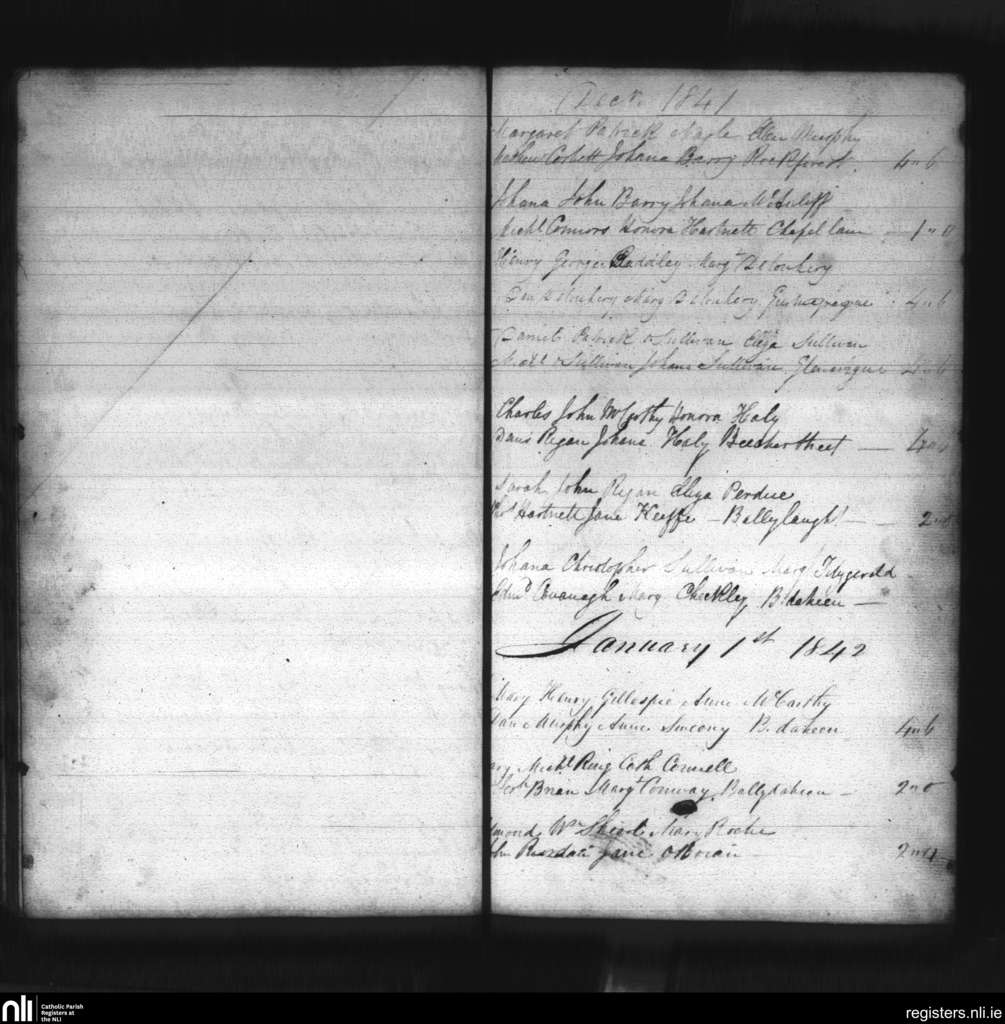 (Decr. 1841
Margaret Patrick Nagle Ellen Murphy
Corbett Johana Barry Rockforest. 4 " 6
Johana John Barry Johana McAuliff
Michl Connors Honora Hartnett Chapel lane — 1 " 0
Henry George Baddley Margt
Mary
Daniel Patrick O Sullivan Eliza Sullivan
Michl O Sullivan Johana Sullivan,
Charles John McCarthy Honora Haly
Danl Regan Johana Haly Beecher Street —
Sarah John Regan Eliza Perdue
Thos Hartnett Jane Keeffe — Ballylaugh
Johana Christopher Sullivan Margt Fitzgerald
Edmd Cavanagh Mary Checkley B.daheen —
January 1st 1842
Mary Henry Gillespie Anne McCarthy
Murphy Anne Sweeny B. daheen 4 " 6
Mary Michl Ring Cath Connell
Brien Margt Conway Ballydaheen — 2 " 0
Edmond Wm Mary Roche
John Jane O Brien —
nli
Catholic Parish
Registers at
the NLI
registers.nli.ie